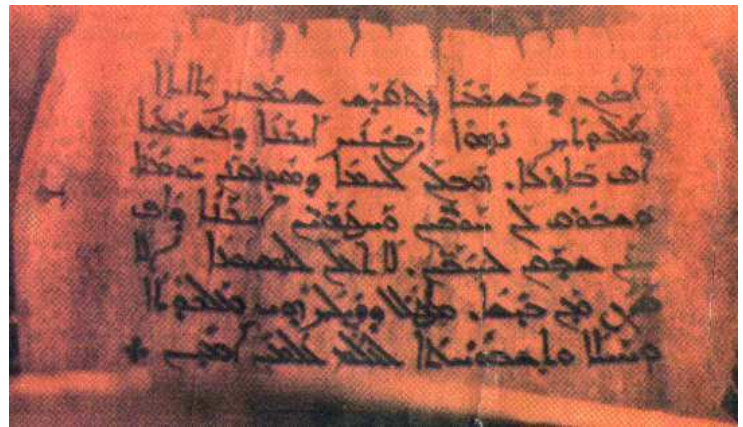 ܐܒܘܢ ܕܒܫܡܝܐ ܢܬܩܕܫ ܫܡܟ ܬܐܬܐ
ܡܠܟܘܬܟ ܢܗܘܐ ܨܒܝܢܟ ܐܝܟܢܐ ܕܒܫܡܝܐ
ܐܦ ܒܐܪܥܐ. ܗܒ ܠܢ ܠܚܡܐ ܕܣܘܢܩܢܢ ܝܘܡܢܐ
ܘܫܒܘܩ ܠܢ ܚܘܒܝܢ ܘܚܛܗܝܢ ܐܝܟܢܐ ܕܐܦ
ܚܢܢ ܫܒܩܢ ܠܚܝܒܝܢ. ܠܐ ܬܥܠܢ ܠܢܣܝܘܢܐ ܐܠܐ
ܦܨܢ ܡܢ ܒܝܫܐ. ܡܛܠ ܕܕܝܠܟ ܗܝ ܡܠܟܘܬܐ
ܘܚܝܠܐ ܘܬܫܒܘܚܬܐ ܠܥܠܡ ܥܠܡܝܢ ܐܡܝܢ ܀